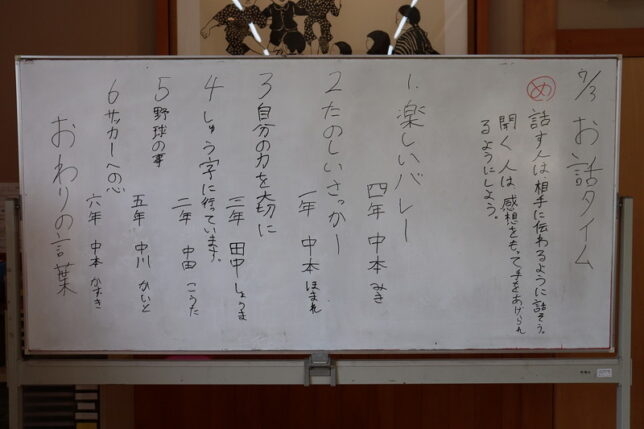 7/3 お話タイム
め 話す人は相手に伝わるように話そう。
聞く人は感想をもって手をあげられ
るようにしよう。
1. 楽しいバレー
四年 中本 みき
2 たのしいさっかー
一年 中本 ほまれ
3 自分の力を大切に
三年 田中 しょうま
4 しゅう字に行っています。
二年 中田 こうた
5 野球の事
五年 中川 かいと
6 サッカーへの心
六年 中本 かずき
おわりの言葉